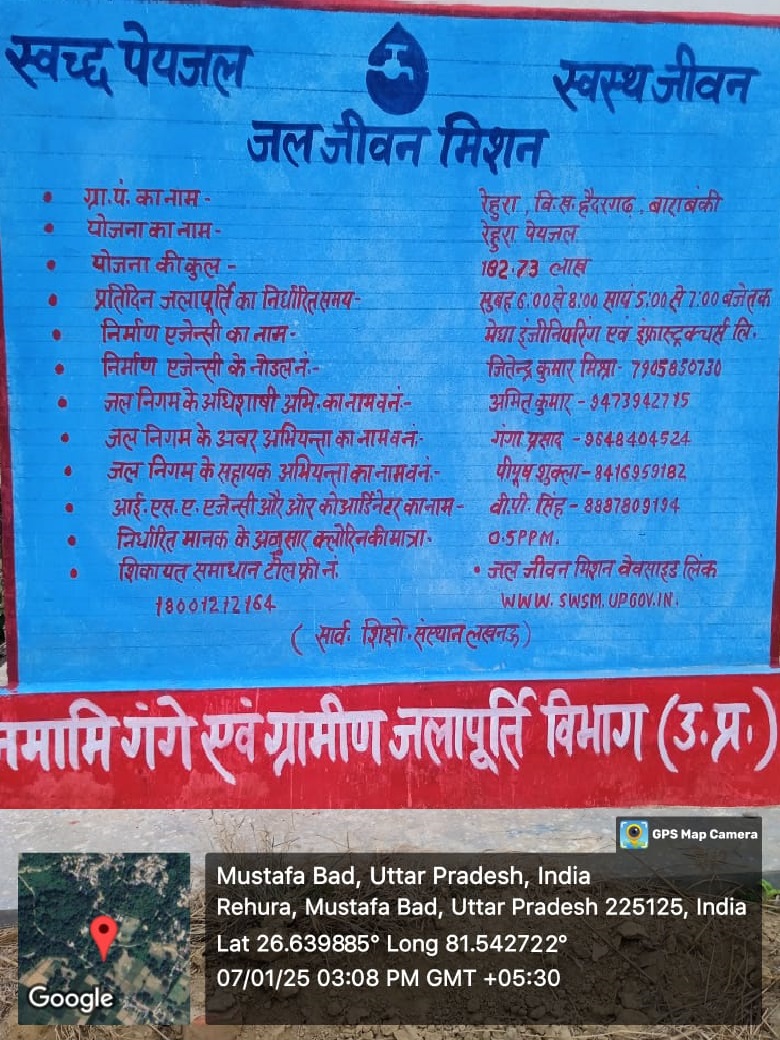 स्वच्छ पेयजल
स्वस्थ जीवन
जल जीवन मिशन
• ग्रा.पं. का नाम - रेहुरा, वि.स. हैदरगढ़, बाराबंकी
• योजना का नाम - रेहुरा पेयजल
• योजना की कुल - 182.73 लाख
• प्रतिदिन जलापूर्ति का निर्धारित समय - सुबह 6.00 से 8.00 सायं 5.00 से 7.00 बजे तक
• निर्माण एजेन्सी का नाम - मेघा इंजीनियरिंग एवं इंफ्रास्ट्रक्चर्स लि.
• निर्माण एजेन्सी के नोडल नं.- जितेन्द्र कुमार मिश्रा - 7905830730
• जल निगम के अधिशाषी अभि. का नाम व नं.- अमित कुमार - 9473942775
• जल निगम के अवर अभियन्ता का नाम व नं.- गंगा प्रसाद - 9648404524
• जल निगम के सहायक अभियन्ता का नाम व नं.- पीयूष शुक्ला - 8416959182
• आई. एस. ए. एजेन्सी और ओर कोआर्डिनेटर का नाम - वी.पी. सिंह - 8887809194
• निर्धारित मानक के अनुसार क्लोरिन की मात्रा. 0.5 PPM.
• शिकायत समाधान टोल फ्री नं. • जल जीवन मिशन वेवसाइड लिंक
18001212164 WWW. SWSM. UPGOV.IN.
( सार्व. शिक्षो. संस्थान लखनऊ )
नमामि गंगे एवं ग्रामीण जलापूर्ति विभाग (उ.प्र.)
GPS Map Camera
Mustafa Bad, Uttar Pradesh, India
Rehura, Mustafa Bad, Uttar Pradesh 225125, India
Lat 26.639885° Long 81.542722°
07/01/25 03:08 PM GMT +05:30
Google